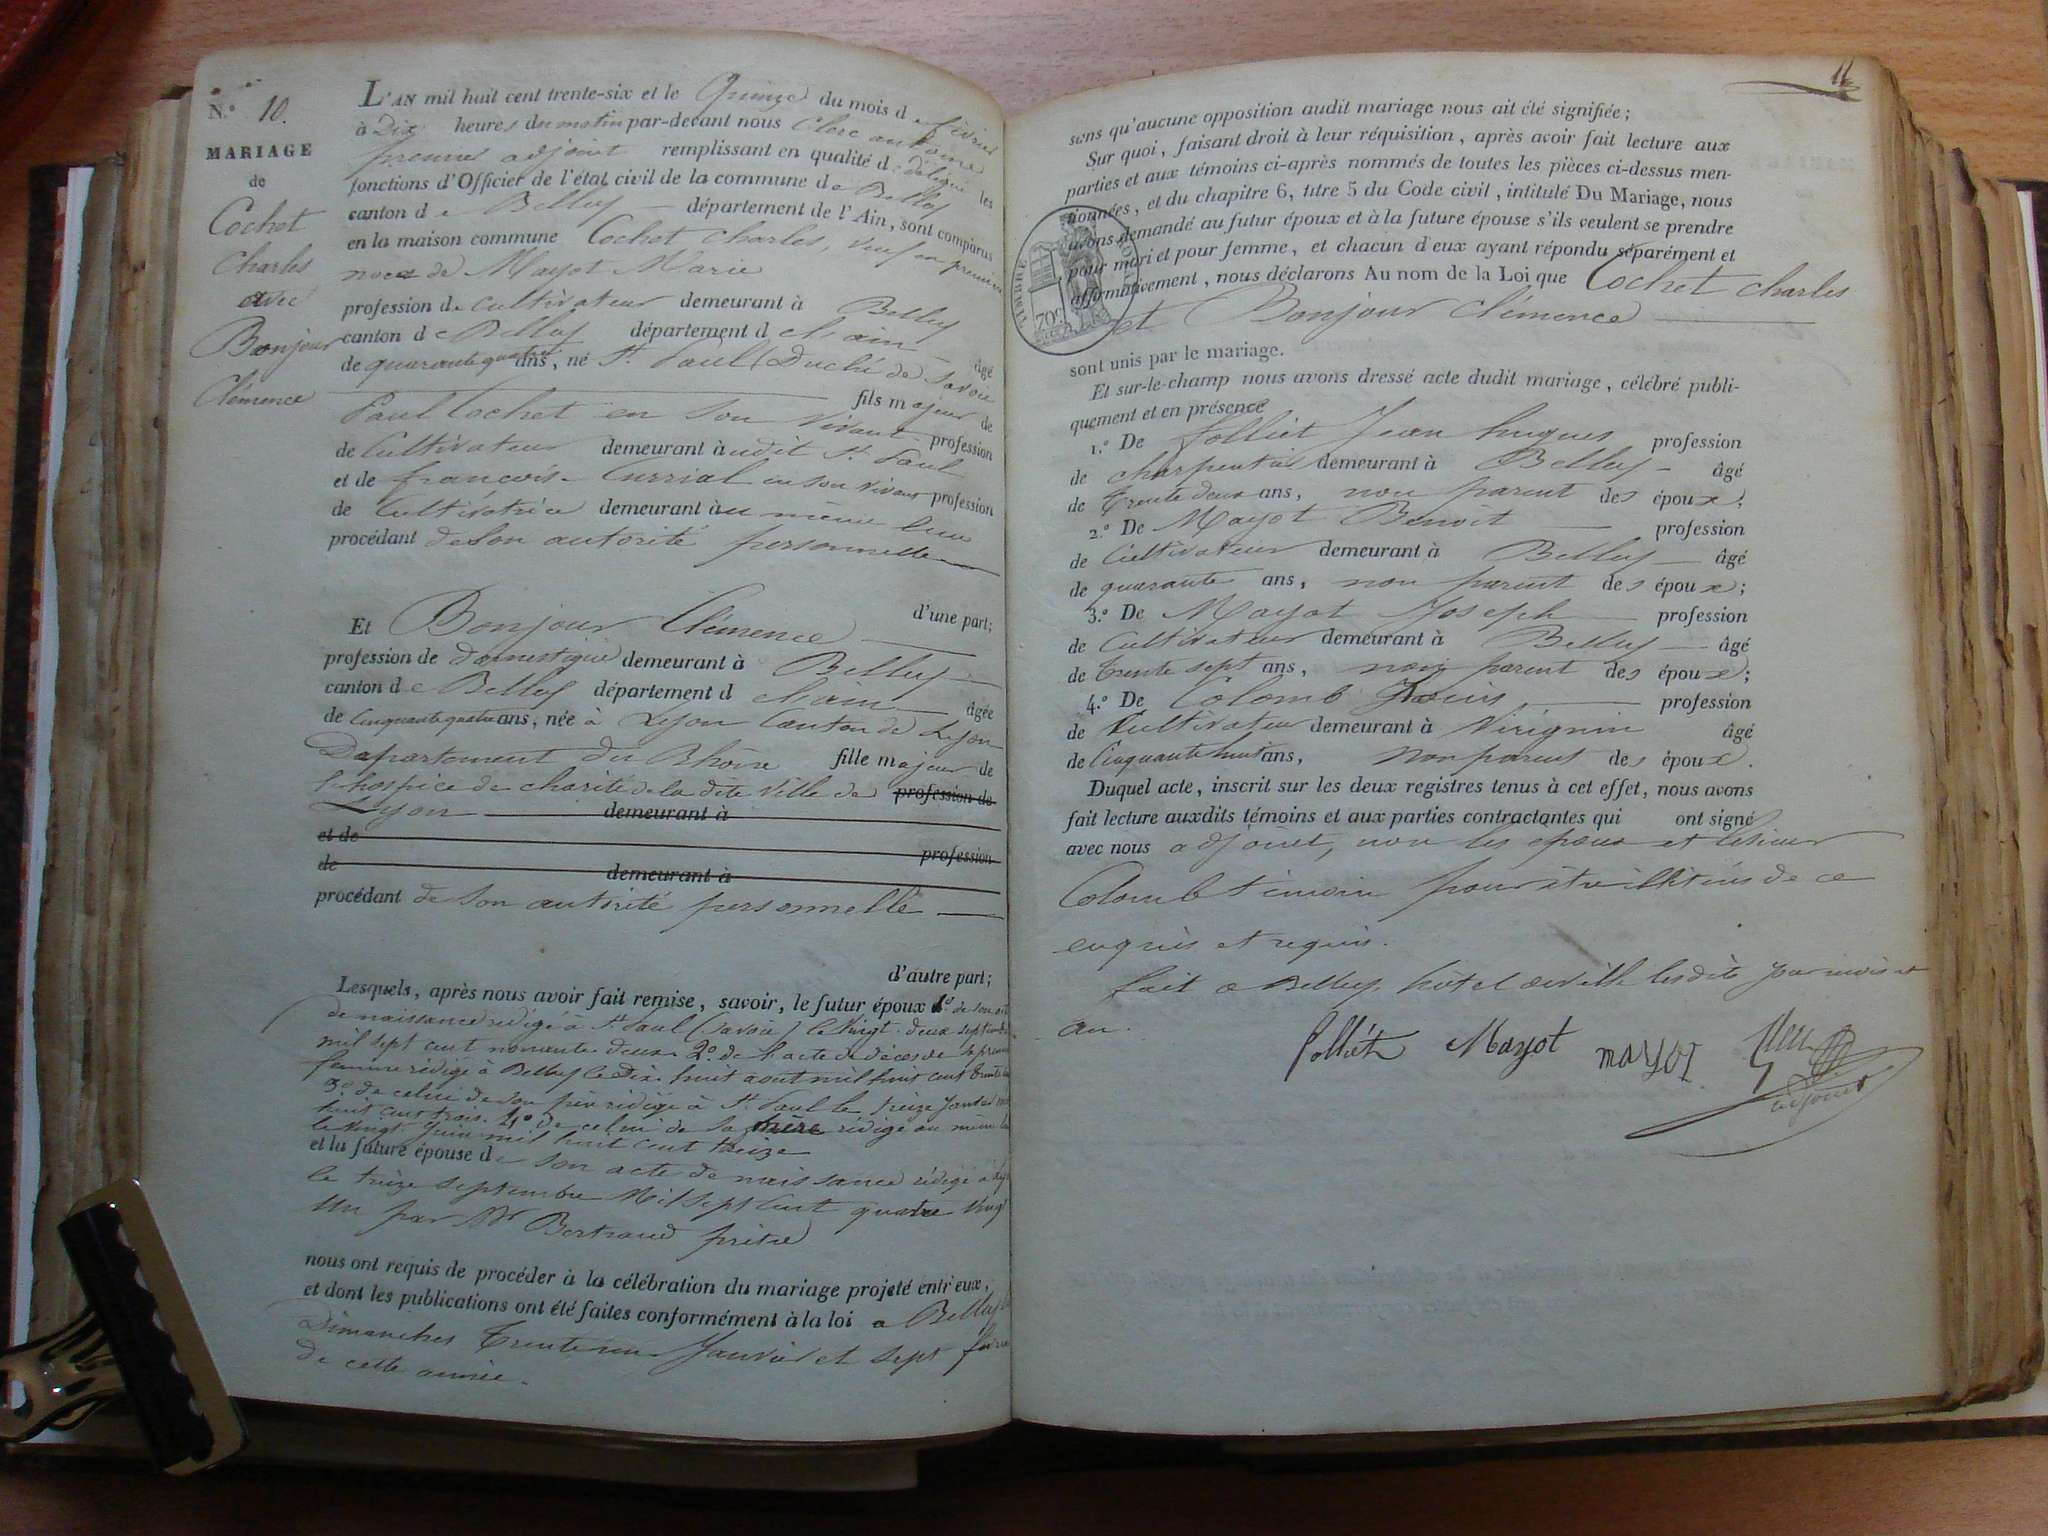 N.º 10.
MARIAGE
de
Cochet
Charles
avec
Bonjour
Clémence
L'AN mil huit cent trente-six et le Quinze du mois de février
à Dix heures du matin par-devant nous Clerc antoine
premier adjoint remplissant en qualité de délégué les
fonctions d'Officier de l'état civil de la commune de Belley
canton de Belley département de l'Ain, sont comparus
en la maison commune Cochet Charles, veuf en premiere
noces de Mayot Marie
profession de cultivateur demeurant à Belley
canton de Belley département de l'ain âgé
de quarante quatre ans, né St. Paul (Duché de Savoie
fils majeur de
Paul Cochet en son vivant profession
de Cultivateur demeurant audit St. Paul
et de francois. Curzial en son vivant profession
de Cultivatrice demeurant au même lieu
procédant de son autorité personnelle
d'une part;
Et Bonjour Clémence
profession de domestique demeurant à Belley
canton de Belley département de l'ain âgée
de Cinquante quatre ans, née à Lyon Canton de Lyon
Département du Rhône fille majeur de
l'hospice de charité de la dite ville de profession de
Lyon demeurant à
et de profession
de demeurant à
procédant de son autorité personnelle
d'autre part;
Lesquels, après nous avoir fait remise, savoir, le futur époux 1.º de son acte
de naissance rédigé à St. Paul (Savoie) le vingt deux septembre
mil sept cent nonante deux 2.º de l'acte de décès de sa premiere
femme rédigé à Belley le Dix huit aout mil huit cent trente
3.º de celui de son père rédigé à St. Paul le treize
huit cent trois. 4.º de celui de sa mère rédigé au même lieu
le vingt juin mil huit cent treize
et la future épouse de son acte de naissance rédigé à Lyon
le treize septembre Mil sept cent quatre vingt
un par Mr Bertraud prêtre
nous ont requis de procéder à la célébration du mariage projeté entr'eux,
et dont les publications ont été faites conformément à la loi a Belley les
Dimanches Trente un Janvier et sept février
de cette année.
11
sens qu'aucune opposition audit mariage nous ait été signifiée;
Sur quoi, faisant droit à leur réquisition, après avoir fait lecture aux
parties et aux témoins ci-après nommés de toutes les pièces ci-dessus men-
tionnées, et du chapitre 6, titre 5 du Code civil, intitulé Du Mariage, nous
avons demandé au futur époux et à la future épouse s'ils veulent se prendre
pour mari et pour femme, et chacun d'eux ayant répondu séparément et
affirmativement, nous déclarons Au nom de la Loi que Cochet Charles
et Bonjour Clémence
TIMBRE ROYAL
70c
sont unis par le mariage.
Et sur-le-champ nous avons dressé acte dudit mariage, célébré publi-
quement et en présence
1.º De Folliet Jean hugues profession
de charpentier demeurant à Belley âgé
de Trente deux ans, non parent des époux;
2.º De Mayot Benoit profession
de Cultivateur demeurant à Belley âgé
de quarante ans, non parent des époux;
3.º De Mayot Joseph profession
de Cultivateur demeurant à Belley âgé
de trente sept ans, non parent des époux;
4.º De Colomb profession
de Cultivateur demeurant à Virignin âgé
de Cinquante huit ans, non parent des époux.
Duquel acte, inscrit sur les deux registres tenus à cet effet, nous avons
fait lecture auxdits témoins et aux parties contractantes qui ont signé
avec nous adjoint, non les époux et le sieur
Colomb témoin pour être illitérés de ce
enquis et requis.
fait a Belley hôtel de ville lesdits jour mois et
an.
folliet Mayot mayot Clerc
adjoint